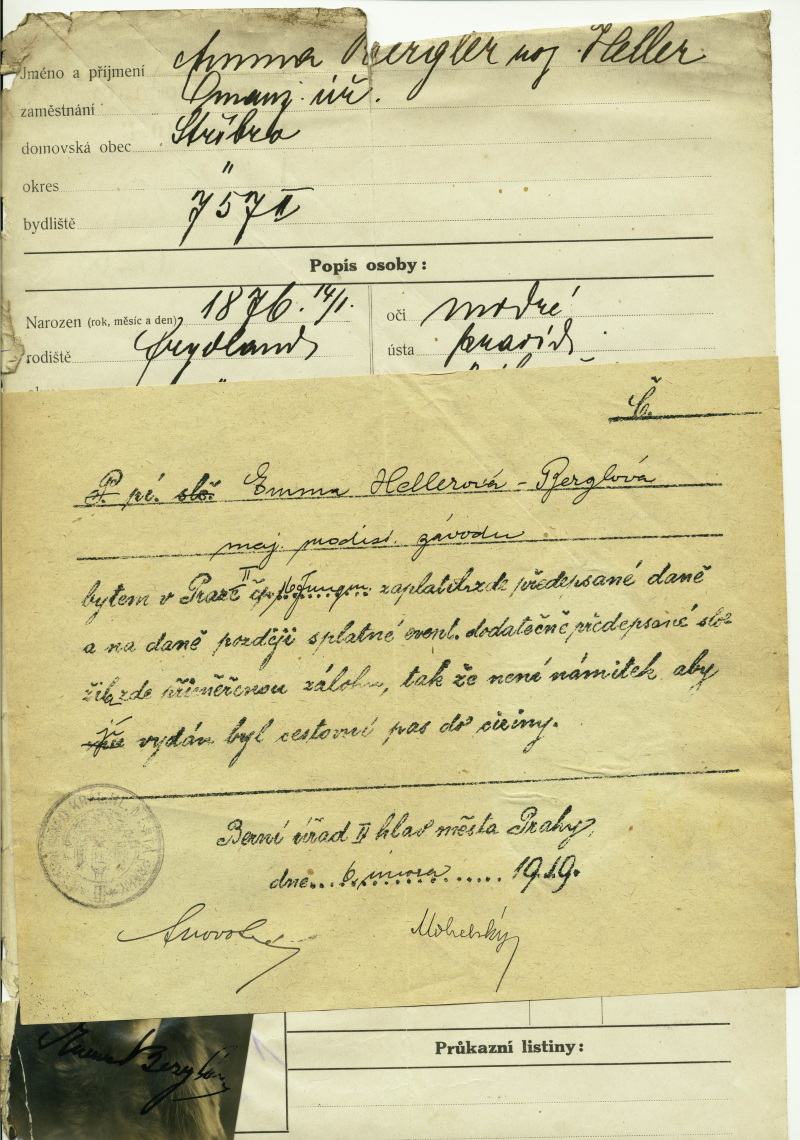 Jméno a příjmení Emma Bergler roz. Heller
zaměstnání úř.
domovská obec Stříbro
okres "
bydliště 757 II
Popis osoby:
Narozen (rok, měsíc a den) 1876. 14/1.
oči modré
rodiště Frydland
ústa pravid.
Č.
P. pí. slč. Emma Hellerová - Berglová
maj. modist. závodu
bytem v Praze II čp. 16 Jungm. zaplatil zde předepsané daně
a na daně později splatné event. dodatečně předepsané slo-
žila zde přiměřenou zálohu, tak že není námitek aby
jí vydán byl cestovní pas do ciziny.
Berní úřad II hlav města Prahy,
dne 6. února 1919.
Mohelský
Emma Berglová
Průkazní listiny: